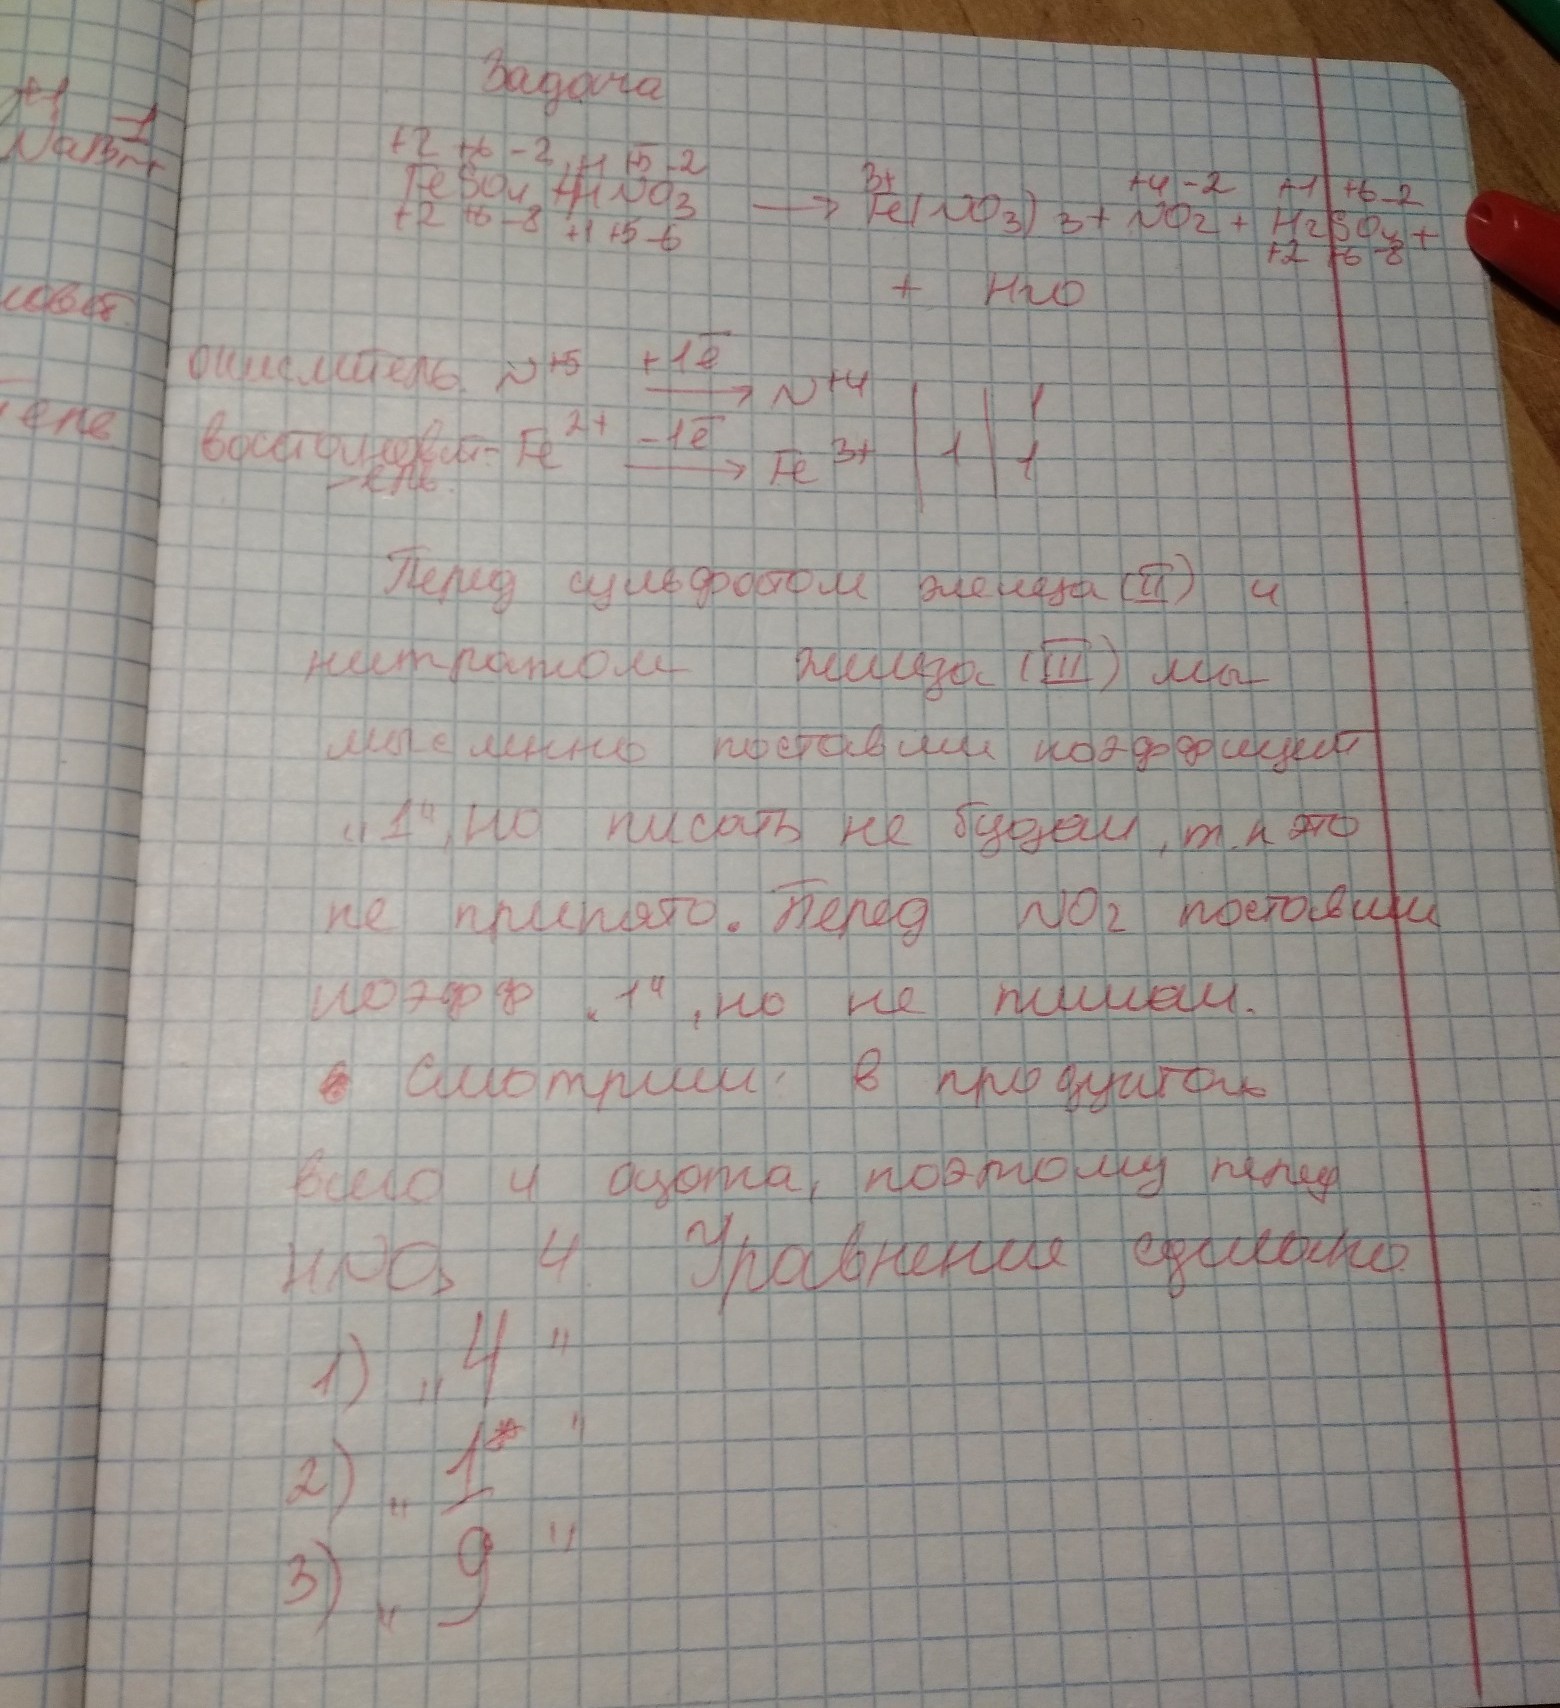 +1 -1
NaBr+
Задача
+2 +6 -2 +1 +5 -2
FeSO4 + 4HNO3 → Fe(NO3)3 + NO2 + H2SO4 +
3+ +4 -2 +1 +6 -2
+2 +6 -8 +1 +5 -6
+2 +6 -8
+ H2O
окислитель N+5 +1ē → N+4 | | 1
восстановит- Fe2+ -1ē → Fe3+ | 1 | 1
-ель.
Перед сульфатом железа (II) и
нитратом железа (III) мы
мысленно поставим коэффициент
„1“, но писать не будем, т.к это
не принято. Перед NO2 поставим
коэфф „1“, но не пишем.
Смотрим: в продуктах
всего 4 азота, поэтому перед
HNO3 4. Уравнение сделано.
1) „4"
2) „1"
3) „9"